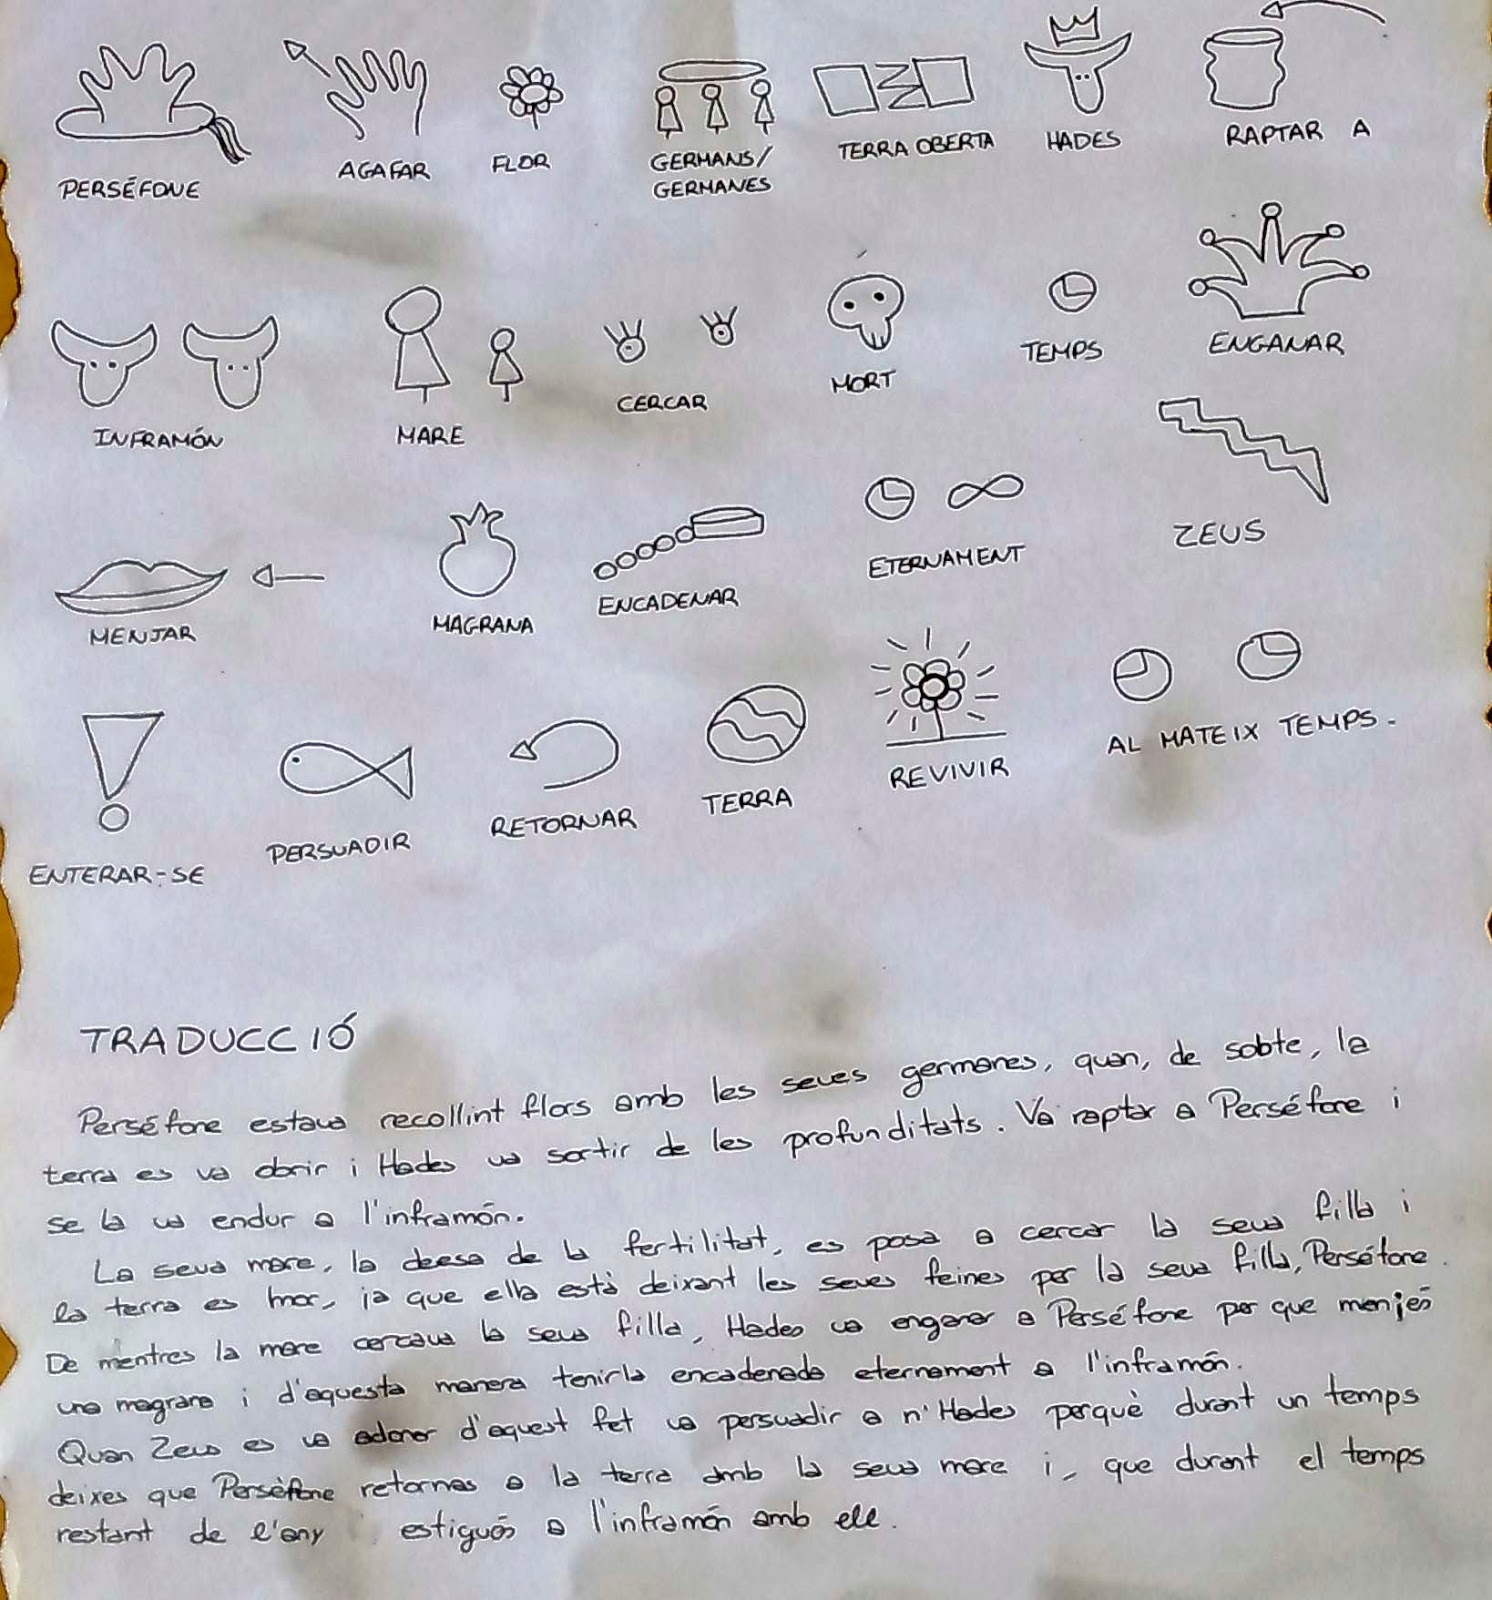 PERSÉFONE AGAFAR FLOR GERMANS/ GERMANES TERRA OBERTA HADES RAPTAR A
INFRAMÓN MARE CERCAR MORT TEMPS ENGANAR
MENJAR MAGRANA ENCADENAR ETERNAMENT ZEUS
ENTERAR-SE PERSUADIR RETORNAR TERRA REVIVIR AL MATEIX TEMPS.
TRADUCCIÓ
Perséfone estava recollint flors amb les seves germanes, quan, de sobte, la
terra es va obrir i Hades va sortir de les profunditats. Va raptar a Perséfone i
se la va endur a l'inframón.
La seva mare, la deesa de la fertilitat, es posa a cercar la seva filla i
la terra es mor, ja que ella està deixant les seves feines per la seva filla, Perséfone.
De mentres la mare cercava la seva filla, Hades va enganar a Perséfone per que menjés
una magrana i d'aquesta manera tenirla encadenada eternament a l'inframón.
Quan Zeus es va adonar d'aquest fet va persuadir a n'Hades perquè durant un temps
deixes que Persèfone retornas a la terra amb la seva mare i, que durant el temps
restant de l'any estigués a l'inframón amb ell.